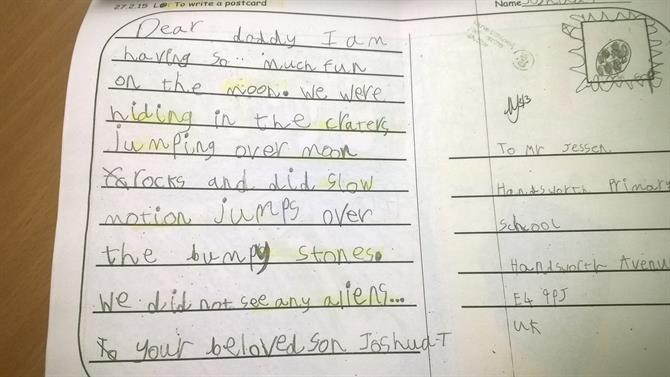 27.2.15 LO: To write a postcard
Name
Dear daddy I am
having so.. much fun
on the moon. We were
hiding in the craters,
jumping over moon
rocks and did slow
motion jumps over
the bumpy stones.
We did not see any aliens...
your beloved son Joshua-T
To Mr Jessen
Handsworth Primar
School
Handsworth Avenu
E4 9PJ
UK